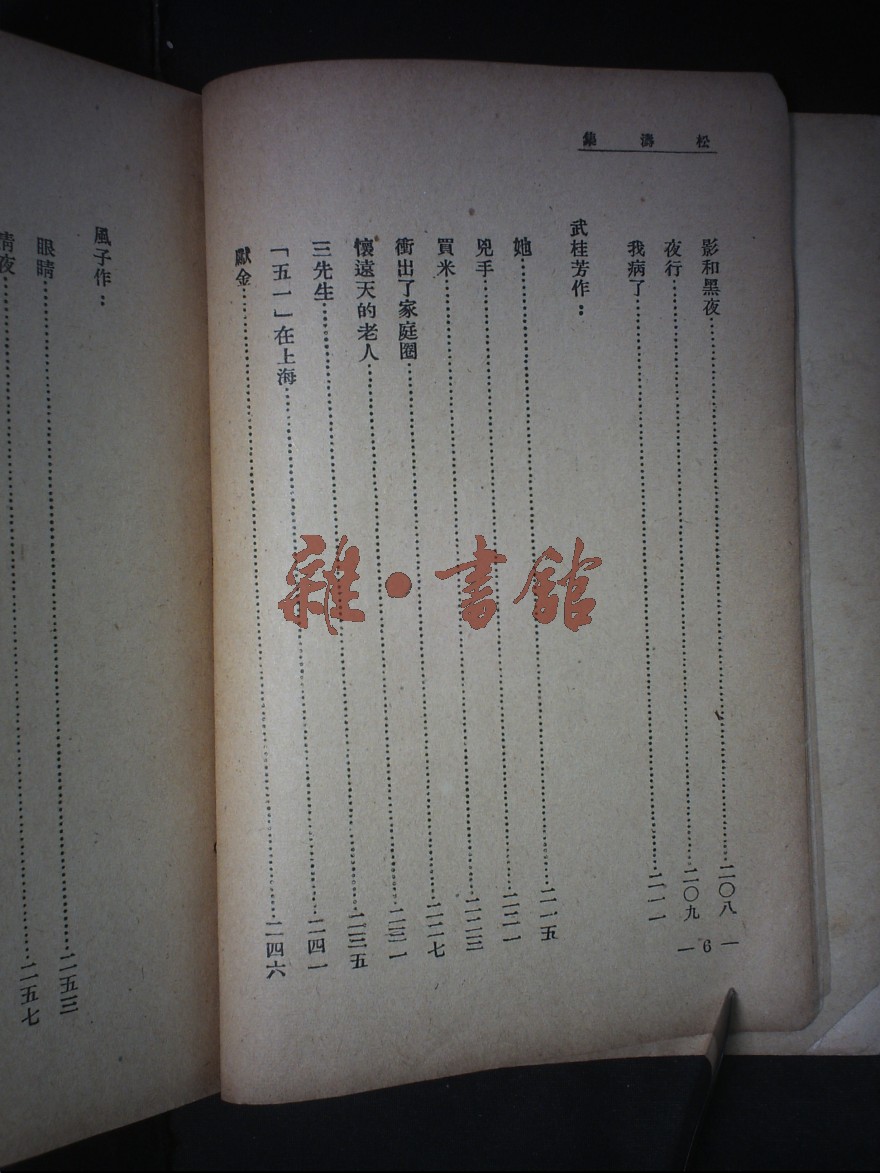 松濤集
影和黑夜……二〇八
夜行……二〇九
我病了……二一一
武桂芳作：
她……二一五
兇手……二二一
買米……二二三
衝出了家庭圈……二二七
懷遠天的老人……二三一
三先生……二三五
「五一」在上海……二四一
獻金……二四六
— 6 —
風子作：
眼睛……二五三
清夜……二五七
雜·書館